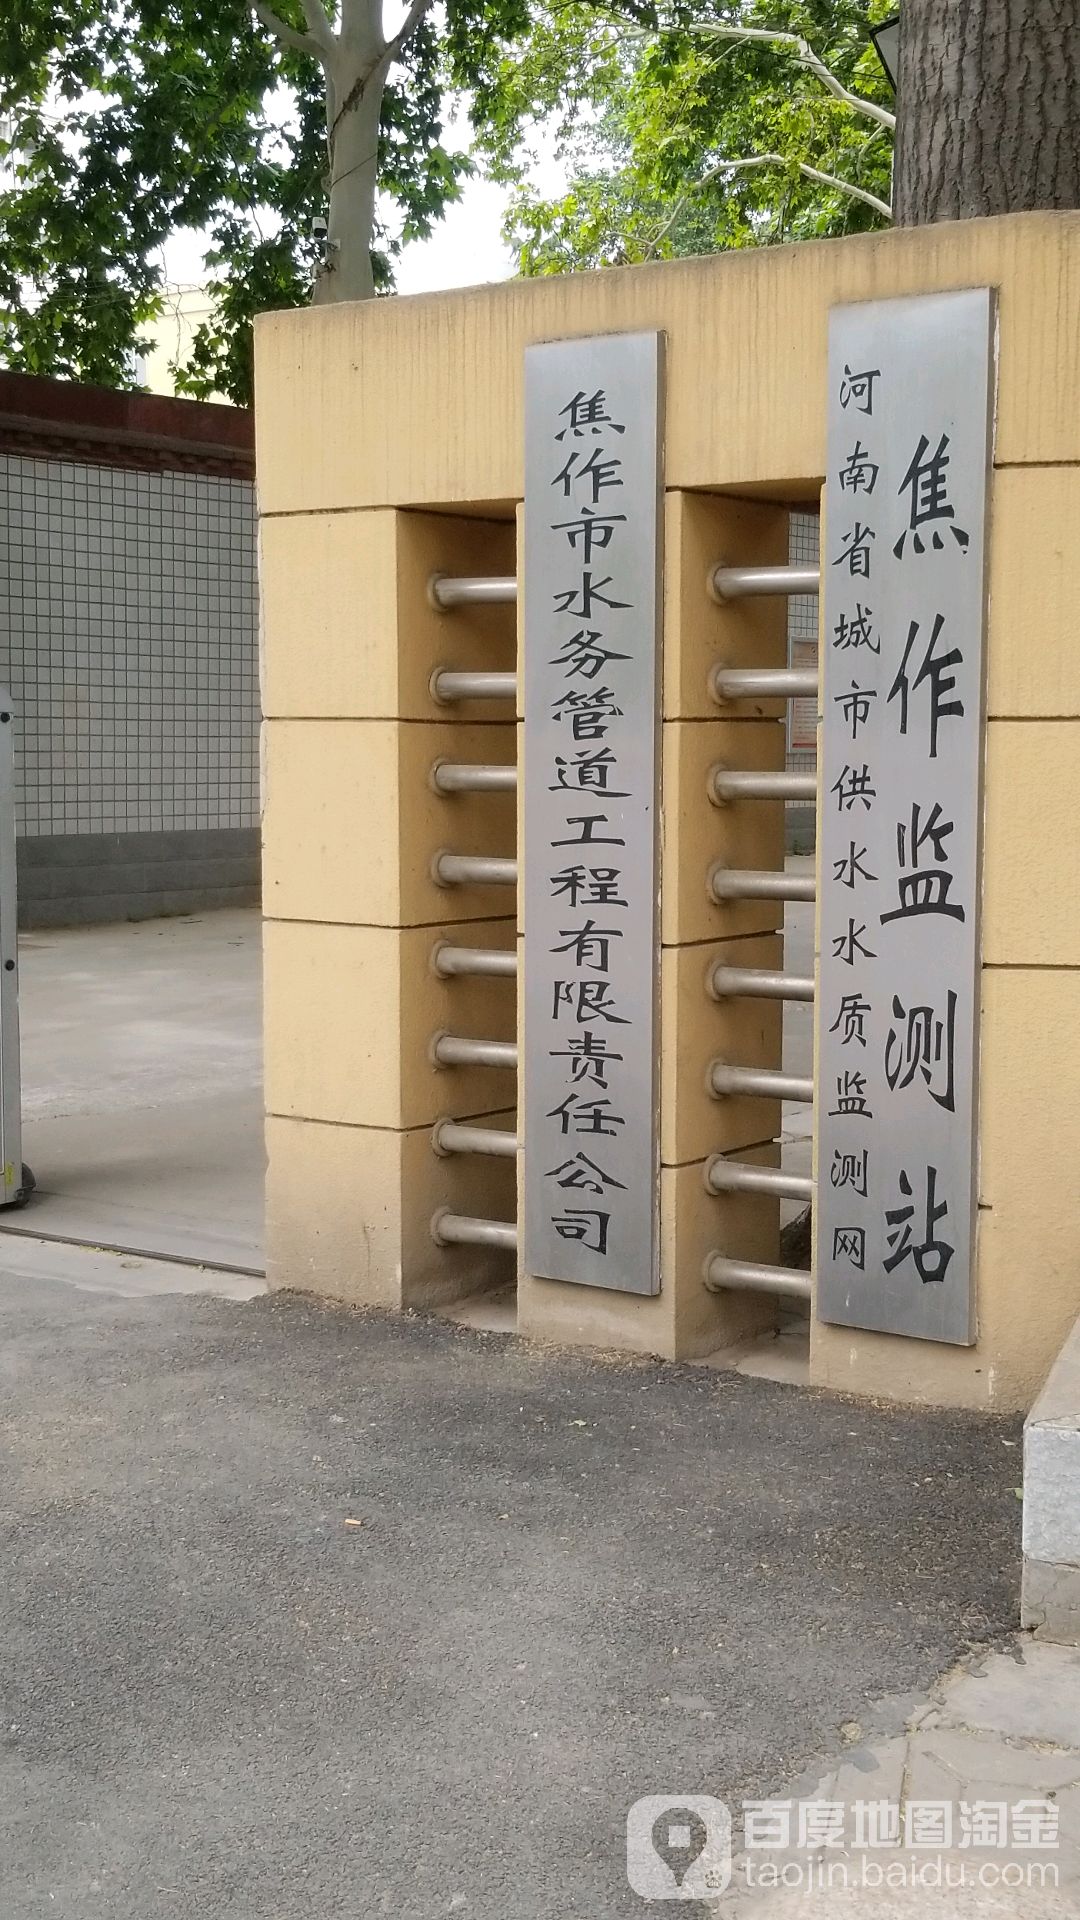 河南省城市供水水质监测网
焦作监测站
焦作市水务管道工程有限责任公司
百度地图淘金
taojin.baidu.com